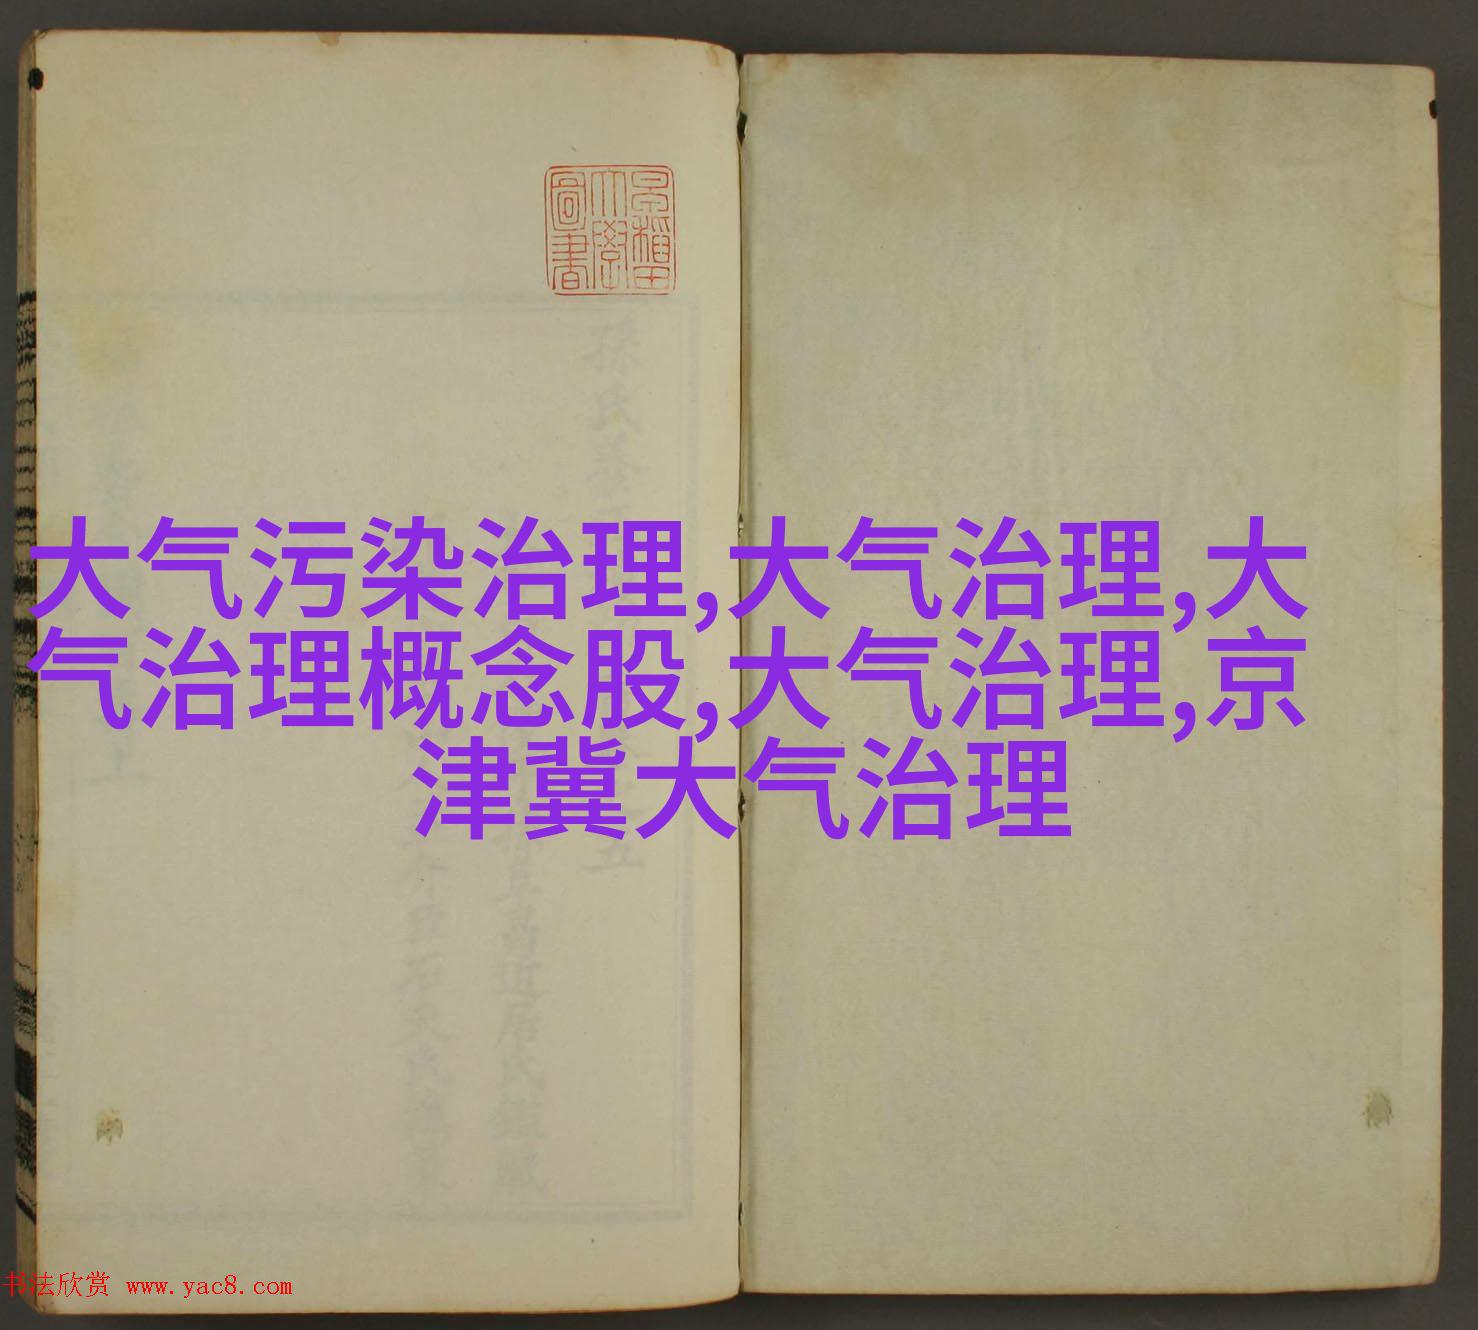 早稲田
大學
圖書
大气污染治理,大气治理,大
气治理概念股,大气治理,京
津冀大气治理
书法欣赏 www.yac8.com